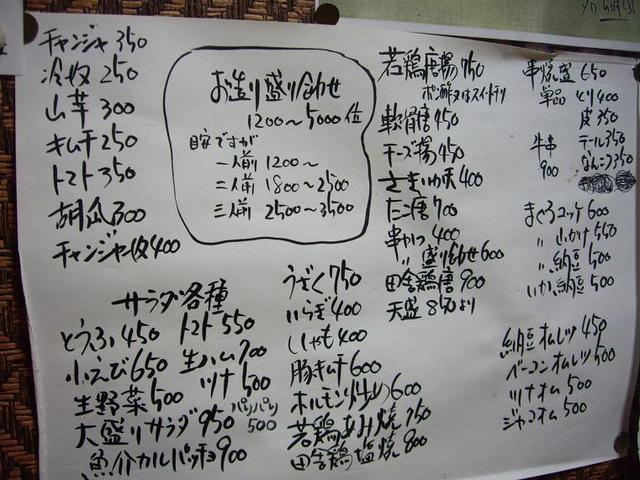 チャンジャ 350
冷奴 250
山芋 300
キムチ 250
トマト 350
胡瓜 300
チャンジャ奴 400
お造り盛り合わせ
1200～5000位
目安ですが
一人前 1200～
二人前 1800～2500
三人前 2500～3500
若鶏唐揚 750
ポン酢又はスイートチリ
軟骨唐 450
チーズ揚 450
さきいか天 400
たこ唐 700
串かつ 400
〃 盛り合わせ 600
田舎鶏唐 900
天盛 850より
串焼盛 650
単品 とり 400
皮 350
牛串 900
テール 350
なんこつ 350
まぐろユッケ 600
〃 山かけ 550
〃 納豆 500
いか納豆 500
納豆オムレツ 450
ベーコンオムレツ 500
ツナオム 500
ジャコオム 500
サラダ各種
とうふ 450
トマト 550
小えび 650
生ハム 700
生野菜 500
ツナ 500
大盛りサラダ 950
パリパリ 500
魚介カルパッチョ 900
うざく 750
いらぎ 400
ししゃも 400
豚キムチ 600
ホルモン炒め 600
若鶏あみ焼 750
田舎鶏塩焼 800